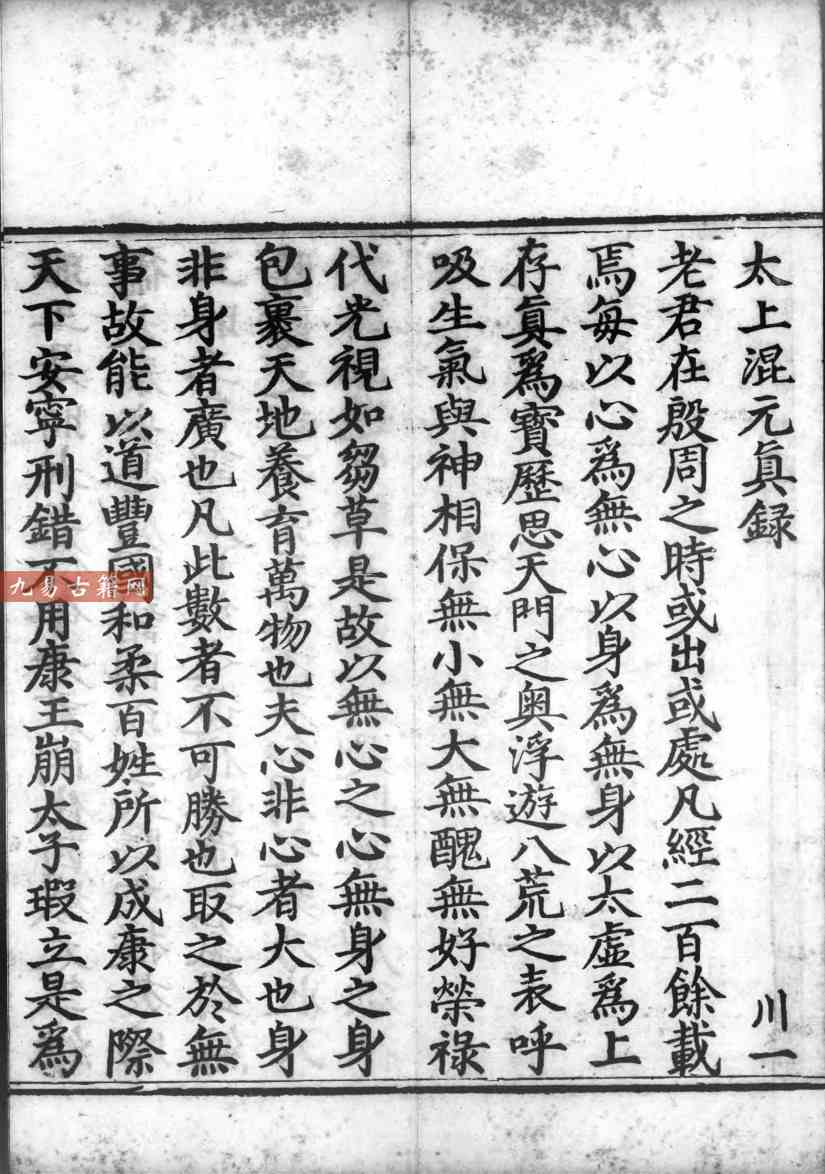 太上混元真録
川一
老君在殷周之時或出或處凡經二百餘載
焉每以心爲無心以身爲無身以太虛爲上
存真爲寶歷思天門之奥浮遊八荒之表呼
吸生氣與神相保無小無大無醜無好榮祿
代光視如芻草是故以無心之心無身之身
包裹天地養育萬物也夫心非心者大也身
非身者廣也凡此數者不可勝也取之於無
事故能以道豐國和柔百姓所以成康之際
天下安寧刑錯不用康王崩太子瑕立是爲
九易古籍网